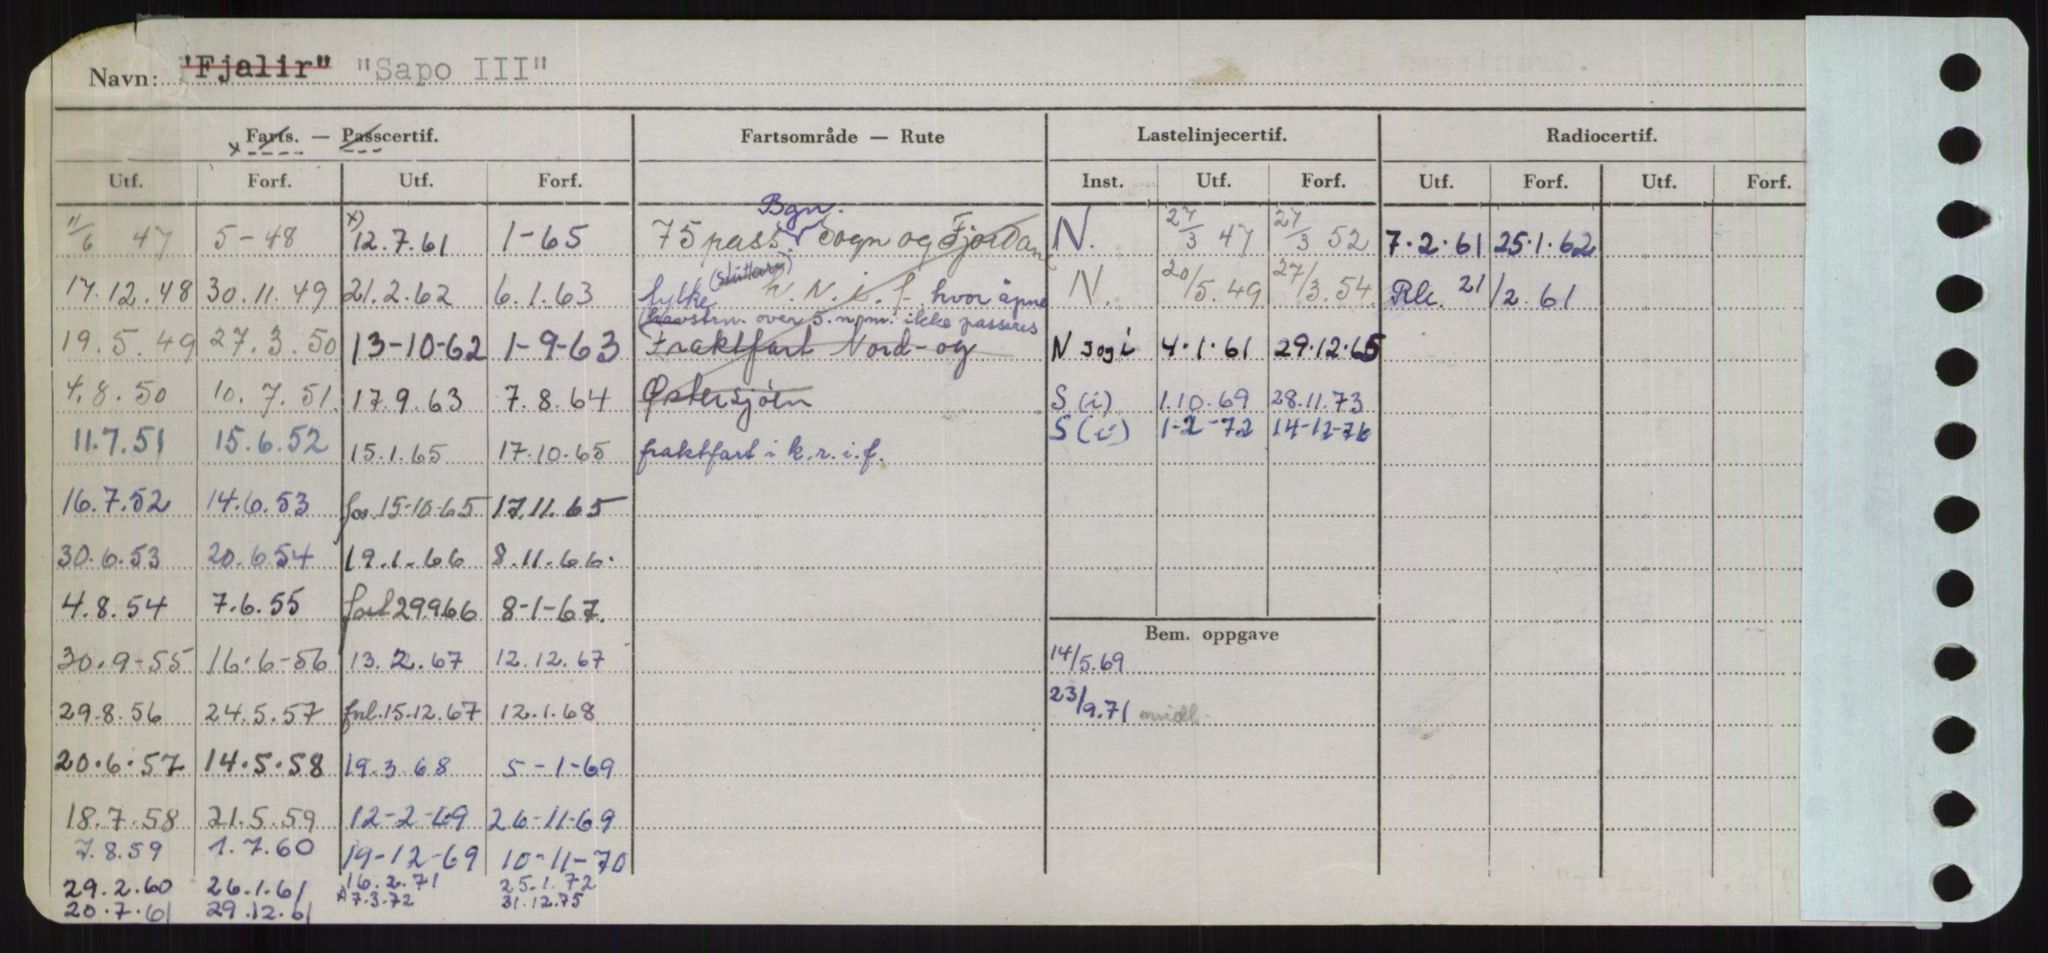 Navn: "Fjalir" "Sapo III"
x Farts. — Passcertif. Fartsområde — Rute Lastelinjecertif. Radiocertif.
Utf. Forf. Utf. Forf. Inst. Utf. Forf. Utf. Forf. Utf. Forf.
Bgn.
11/6 47 5-48 x) 12.7.61 1-65 75 pass. Sogn og Fjordane N. 27/3 47 27/3 52 7.2.61 25.1.62
17.12.48 30.11.49 21.2.62 6.1.63 fylke h. N. i. f. hvor åpne N 20/5.49 27/3.54 Rk. 21/2.61
havstrn. over 5. n.m. ikke passeres
19.5.49 27.3.50 13-10-62 1-9-63 Fraktfart Nord- og N s og i 4.1.61 29.12.65
4.8.50 10.7.51 17.9.63 7.8.64 Østersjöen S (i) 1.10.69 28.11.73
11.7.51 15.6.52 15.1.65 17.10.65 fraktfart i k.r.i.f. S (i) 1-2-72 14-12-76
16.7.52 14.6.53 for. 15-10-65 17.11.65
30.6.53 20.6.54 19.1.66 8.11.66.
4.8.54 7.6.55 forl 29.9.66 8-1-67.
Bem. oppgave
30.9-55 16.6-56 13.2.67 12.12.67 14/5.69
29.8.56 24.5.57 forl. 15.12.67 12.1.68 23/9.71
20.6.57 14.5.58 19.3.68 5-1-69
18.7.58 21.5.59 12-2-69 26-11-69
7.8.59 1.7.60 19-12-69 10-11-70
29.2.60 26.1.61 16.2.71 25.1.72
20.7.61 29.12.61 x 7.3.72 31.12.75